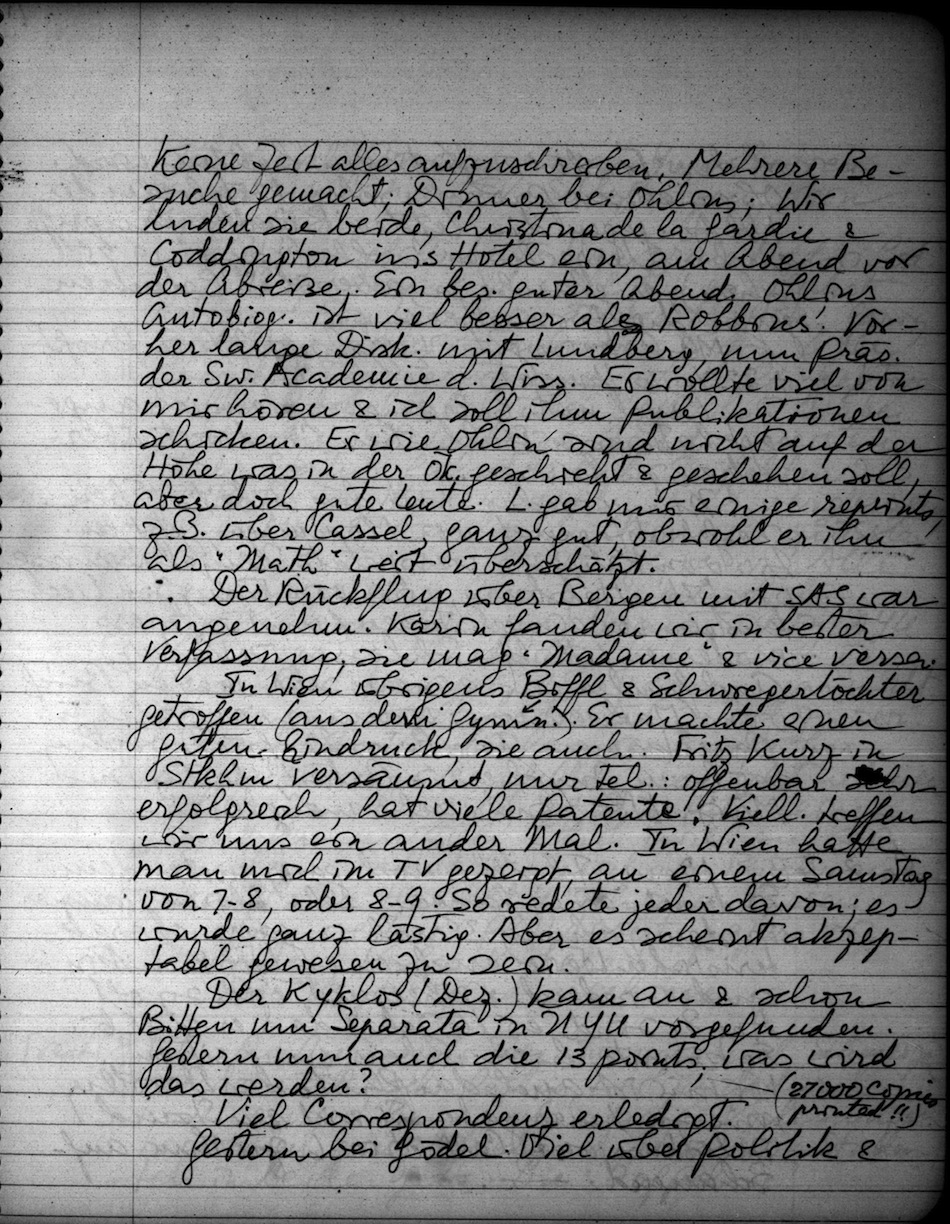 Keine Zeit alles aufzuschreiben. Mehrere Be-
suche gemacht; Dinner bei Ohlins; Wir
luden sie beide, Christina de la Gardie &
Coddington ins Hotel ein, am Abend vor
der Abreise. Ein bes. guter Abend. Ohlins
Autobiog. ist viel besser als Robbins'. Vor-
her lange Disk. mit Lundberg, nun Präs.
der Sw. Academie d. Wiss. Er wollte viel von
mir hören & ich soll ihm Publikationen
schicken. Er wie Ohlin sind nicht auf der
Höhe was in der Ök. geschieht & geschehen soll,
aber doch gute Leute. L. gab mir einige reprints,
z.B. über Cassel, ganz gut, obwohl er ihn
als "Math" weit überschätzt.
Der Rückflug über Bergen mit SAS war
angenehm. Karin fanden wir in bester
Verfassung, sie mag "Madame" & vice versa.
In Wien übrigens Böffl & Schwiegertöchter
getroffen (aus dem Gymn.). Er machte einen
guten Eindruck, sie auch. Fritz Kurz in
Stkhm versäumt, nur Tel.: offenbar sehr
erfolgreich, hat viele Patente. Viell. treffen
wir uns ein ander Mal. In Wien hatte
man mich im TV gezeigt, an einem Samstag
von 7-8, oder 8-9. So redete jeder davon; es
wurde ganz lästig. Aber es scheint akzep-
tabel gewesen zu sein.
Der Kyklos (Dez.) kam an & schon
Bitten um Separata in NYU vorgefunden.
Gestern nun auch die 13 points; was wird
das werden?
(27000 copies
printed!!)
Viel Correspondenz erledigt.
Gestern bei Gödel. Viel über Politik &